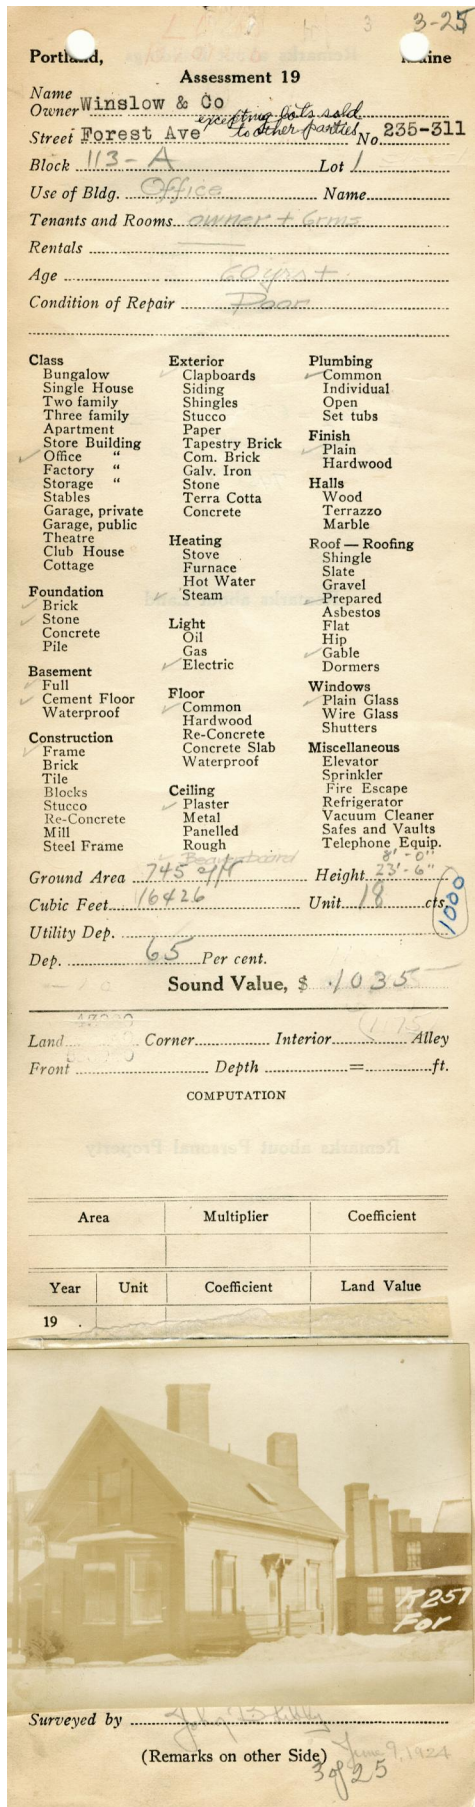 3-25
Portland, Maine
Assessment 19
Name
Owner Winslow & Co excepting lots sold
to other parties
Street Forest Ave No. 235-311
Block 113-A Lot 1
Use of Bldg. Office Name
Tenants and Rooms owner + 6rms
Rentals
Age 60 yrs +
Condition of Repair Poor
Class
Bungalow
Single House
Two family
Three family
Apartment
Store Building
Office "
Factory "
Storage "
Stables
Garage, private
Garage, public
Theatre
Club House
Cottage
Foundation
Brick
Stone
Concrete
Pile
Basement
Full
Cement Floor
Waterproof
Construction
Frame
Brick
Tile
Blocks
Stucco
Re-Concrete
Mill
Steel Frame
Exterior
Clapboards
Siding
Shingles
Stucco
Paper
Tapestry Brick
Com. Brick
Galv. Iron
Stone
Terra Cotta
Concrete
Heating
Stove
Furnace
Hot Water
Steam
Light
Oil
Gas
Electric
Floor
Common
Hardwood
Re-Concrete
Concrete Slab
Waterproof
Ceiling
Plaster
Metal
Panelled
Rough
Beaverboard
Plumbing
Common
Individual
Open
Set tubs
Finish
Plain
Hardwood
Halls
Wood
Terrazzo
Marble
Roof — Roofing
Shingle
Slate
Gravel
Prepared
Asbestos
Flat
Hip
Gable
Dormers
Windows
Plain Glass
Wire Glass
Shutters
Miscellaneous
Elevator
Sprinkler
Fire Escape
Refrigerator
Vacuum Cleaner
Safes and Vaults
Telephone Equip.
8'-0"
Ground Area 745 Height 23'-6"
Cubic Feet 16426 Unit 18 cts.
1000
Utility Dep.
Dep. 65 Per cent.
Sound Value, $ 1035
Land Corner Interior Alley
Front Depth = ft.
COMPUTATION
Remarks about Personal Property
Area Multiplier Coefficient
Year Unit Coefficient Land Value
19
R 257
For
Surveyed by
(Remarks on other Side) June 9, 1924
3 of 25